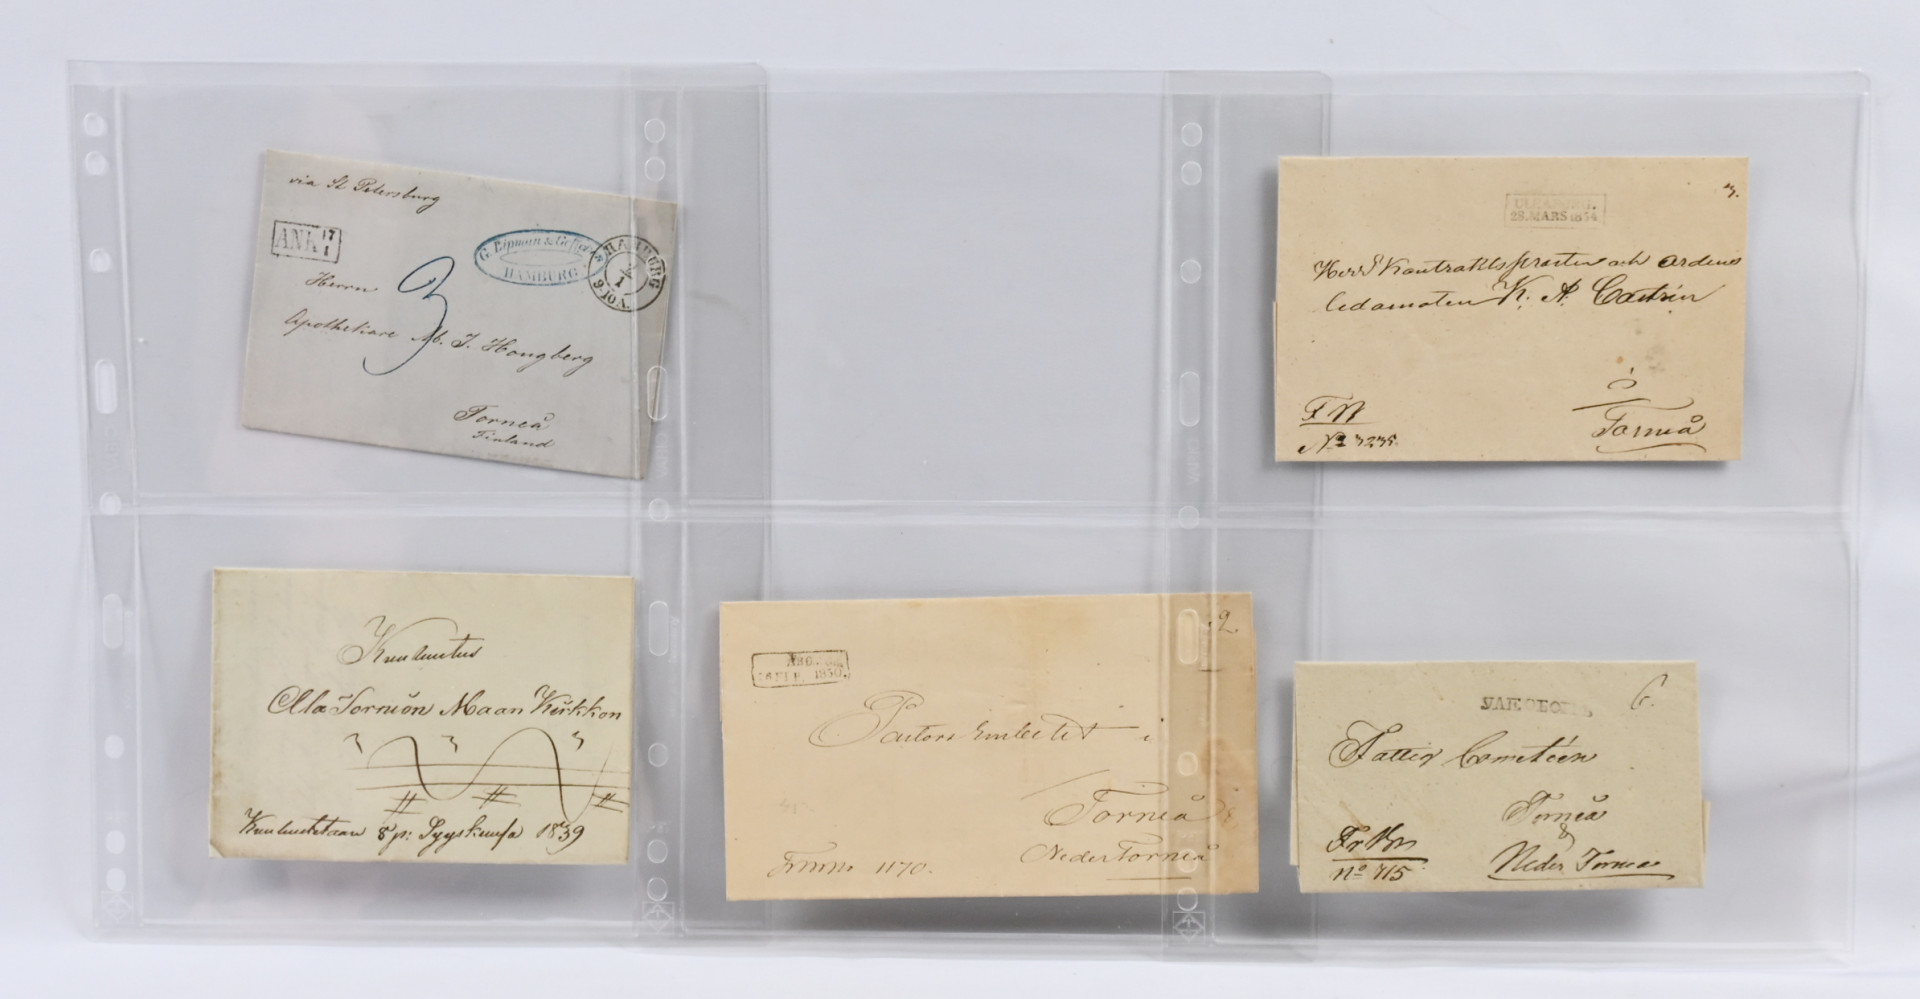 via St Petersburg
ANK 17
1
G. Lipmann & Geffers
HAMBURG
HAMBURG
1
9-10V.
3
Herrn
Apothekare M. J. Hougberg
Torneå
Finland
ULEABORG.
28. MARS 1854
3.
Herr Kontraktsprosten och Ordens
Ledamoten K. A. Castrén
å
Torneå
No 3235.
Kuulutus
Ala Tornion Maan Kirkkon
Kuulutetaan 8 p: Syyskuusa 1839
2
1850.
Pastors Embetet i
Torneå
Neder Torneå
1170.
6.
Fattig Cometéen
Torneå
&
Neder Torneå
no 715